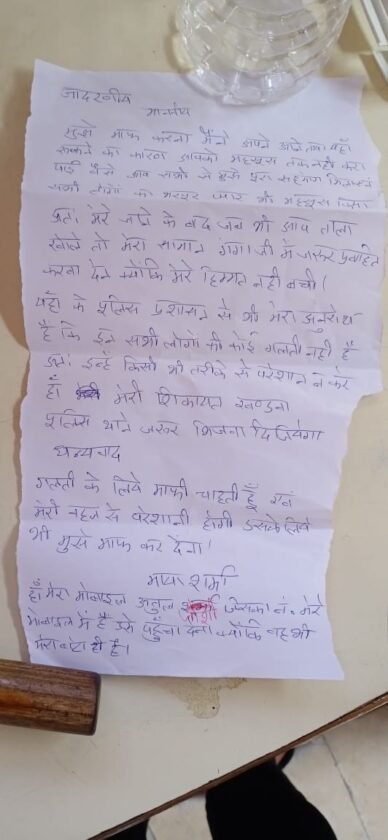 आदरणीय
माननीय
मुझे माफ करना मैंने अपने आने तथा यहाँ
रूकने का कारण आपको महसूस तक नहीं करा
पाई वैसे आप सभी से हमें पूरा सहयोग मिला एवं
सभी लोगों का भरपूर प्यार भी महसूस किया
अतः मेरे जाने के बाद जब भी आप ताला
खोले तो मेरा सामान गंगा जी में जरूर प्रवाहित
करवा देना क्योंकि मेरे हिम्मत नहीं बची।
यहाँ के पुलिस प्रशासन से भी मेरा अनुरोध
है कि इन सभी लोगों की कोई गलती नहीं है
अतः इन्हें किसी भी तरीके से परेशान न करे
हाँ मेरी शिकायत खण्डवा
पुलिस थाने जरूर भिजवा दिजियेगा
धन्यवाद
गलती के लिये माफी चाहती हूँ एवं
मेरी वहज से परेशानी होगी उसके लिये
भी मुझे माफ कर देना।
माया शर्मा
हाँ मेरा मोबाइल अतुल जोशी जिसका नं. मेरे
मोबाइल में है उसे पहुँचा देना क्योंकि वह भी
मेरा बेटा ही है।